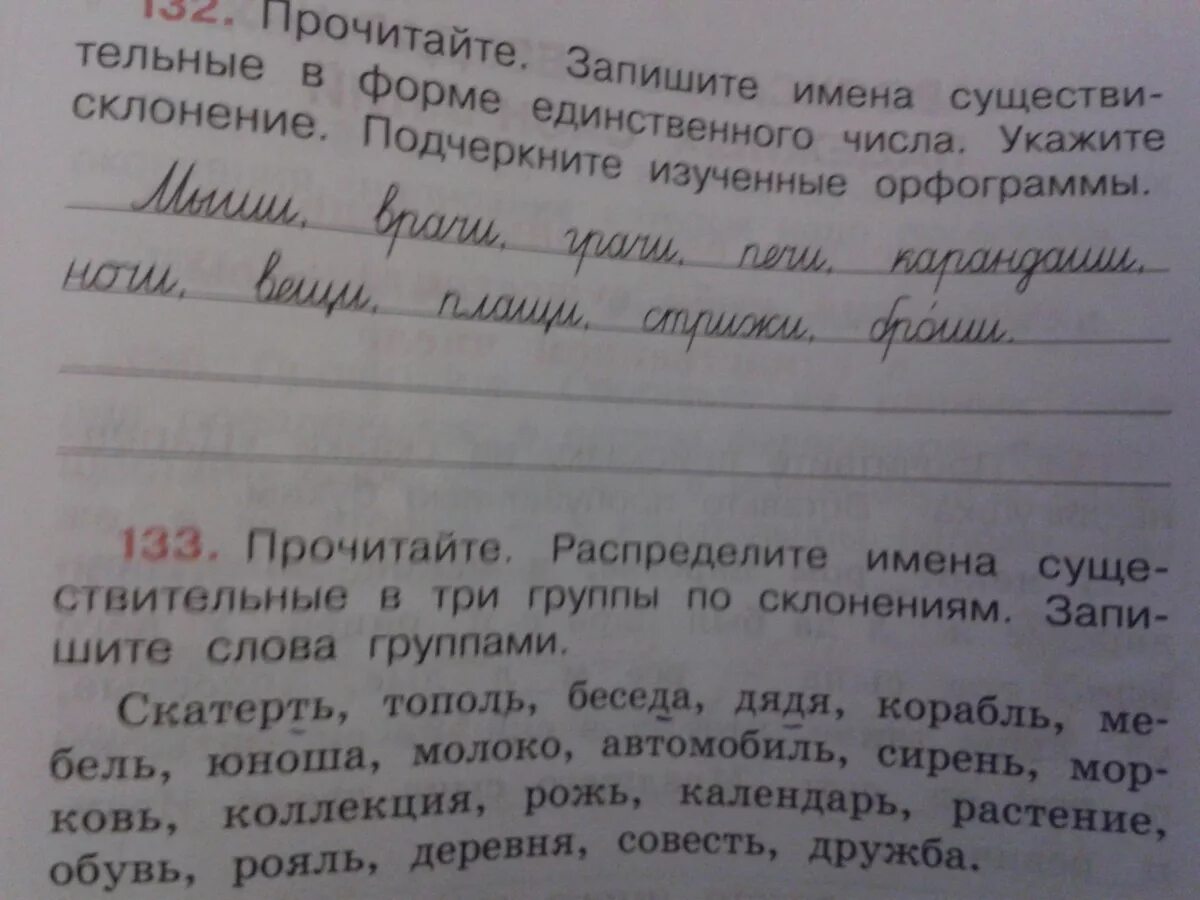 132. Прочитайте. Запишите имена существи-
тельные в форме единственного числа. Укажите
склонение. Подчеркните изученные орфограммы.
Мыши, врачи, грачи, печи, карандаши,
ночи, вещи, плащи, стрижи, бро́ши.
133. Прочитайте. Распределите имена суще-
ствительные в три группы по склонениям. Запи-
шите слова группами.
Скатерть, тополь, беседа, дядя, корабль, ме-
бель, юноша, молоко, автомобиль, сирень, мор-
ковь, коллекция, рожь, календарь, растение,
обувь, рояль, деревня, совесть, дружба.